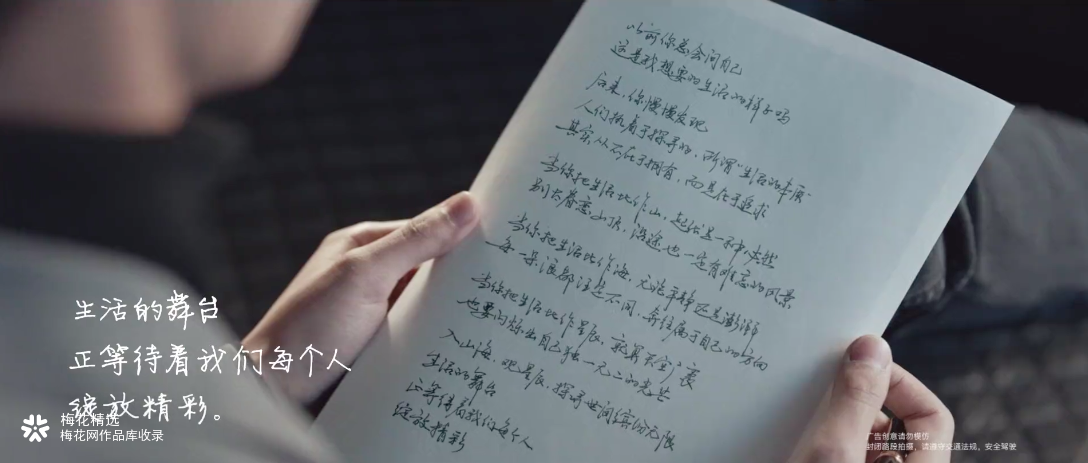 以前你总会问自己
这是我想要的生活的样子吗
后来，你慢慢发现
人们执着于探寻的，所谓“生活的本质”
其实从不在于拥有，而是在于追求
当你把生活比作山，起伏是一种必然
别太眷恋山顶，沿途也一定有难忘的风景
当你把生活比作海，无论平静还是澎湃
每一朵浪都注定不同，奔往属于自己的方向
当你把生活比作星辰，就算天空广袤
也要闪烁出自己独一无二的光芒
入山海，见星辰，探寻世间缤纷无限
生活的舞台
正等待着我们每个人
绽放精彩
生活的舞台
正等待着我们每个人
绽放精彩。
梅花精选
梅花网作品库收录
广告创意请勿模仿
封闭路段拍摄，请遵守交通法规，安全驾驶